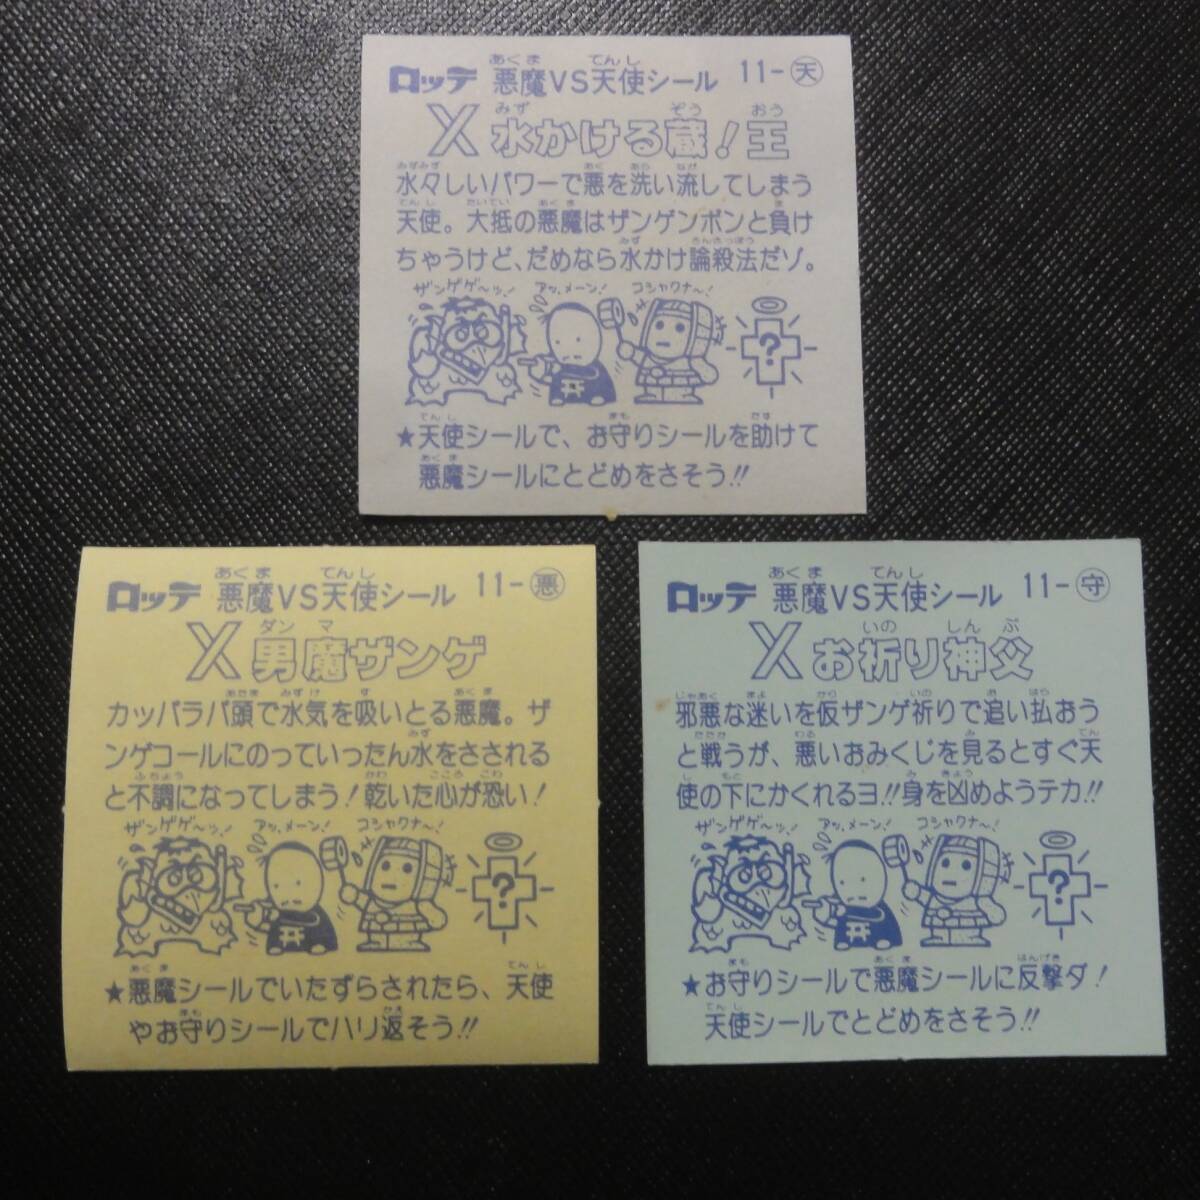 ロッテ 悪魔VS天使シール 11-天
X 水かける蔵!王
水々しいパワーで悪を洗い流してしまう
天使。大抵の悪魔はザンゲンボンと負け
ちゃうけど、だめなら水かけ論殺法だゾ。
ザンゲゲ〜ッ! アッ、メーン! コシャクナ〜!
?
★天使シールで、お守りシールを助けて
悪魔シールにとどめをさそう!!
ロッテ 悪魔VS天使シール 11-悪
X 男魔ザンゲ
カッパラパ頭で水気を吸いとる悪魔。ザ
ンゲコールにのっていったん水をさされる
と不調になってしまう!乾いた心が恐い!
ザンゲゲ〜ッ! アッ、メーン! コシャクナ〜!
?
★悪魔シールでいたずらされたら、天使
やお守りシールでハリ返そう!!
ロッテ 悪魔VS天使シール 11-守
X お祈り神父
邪悪な迷いを仮ザンゲ祈りで追い払おう
と戦うが、悪いおみくじを見るとすぐ天
使の下にかくれるヨ!!身を凶めようテカ!!
ザンゲゲ〜ッ! アッ、メーン! コシャクナ〜!
?
★お守りシールで悪魔シールに反撃ダ!
天使シールでとどめをさそう!!